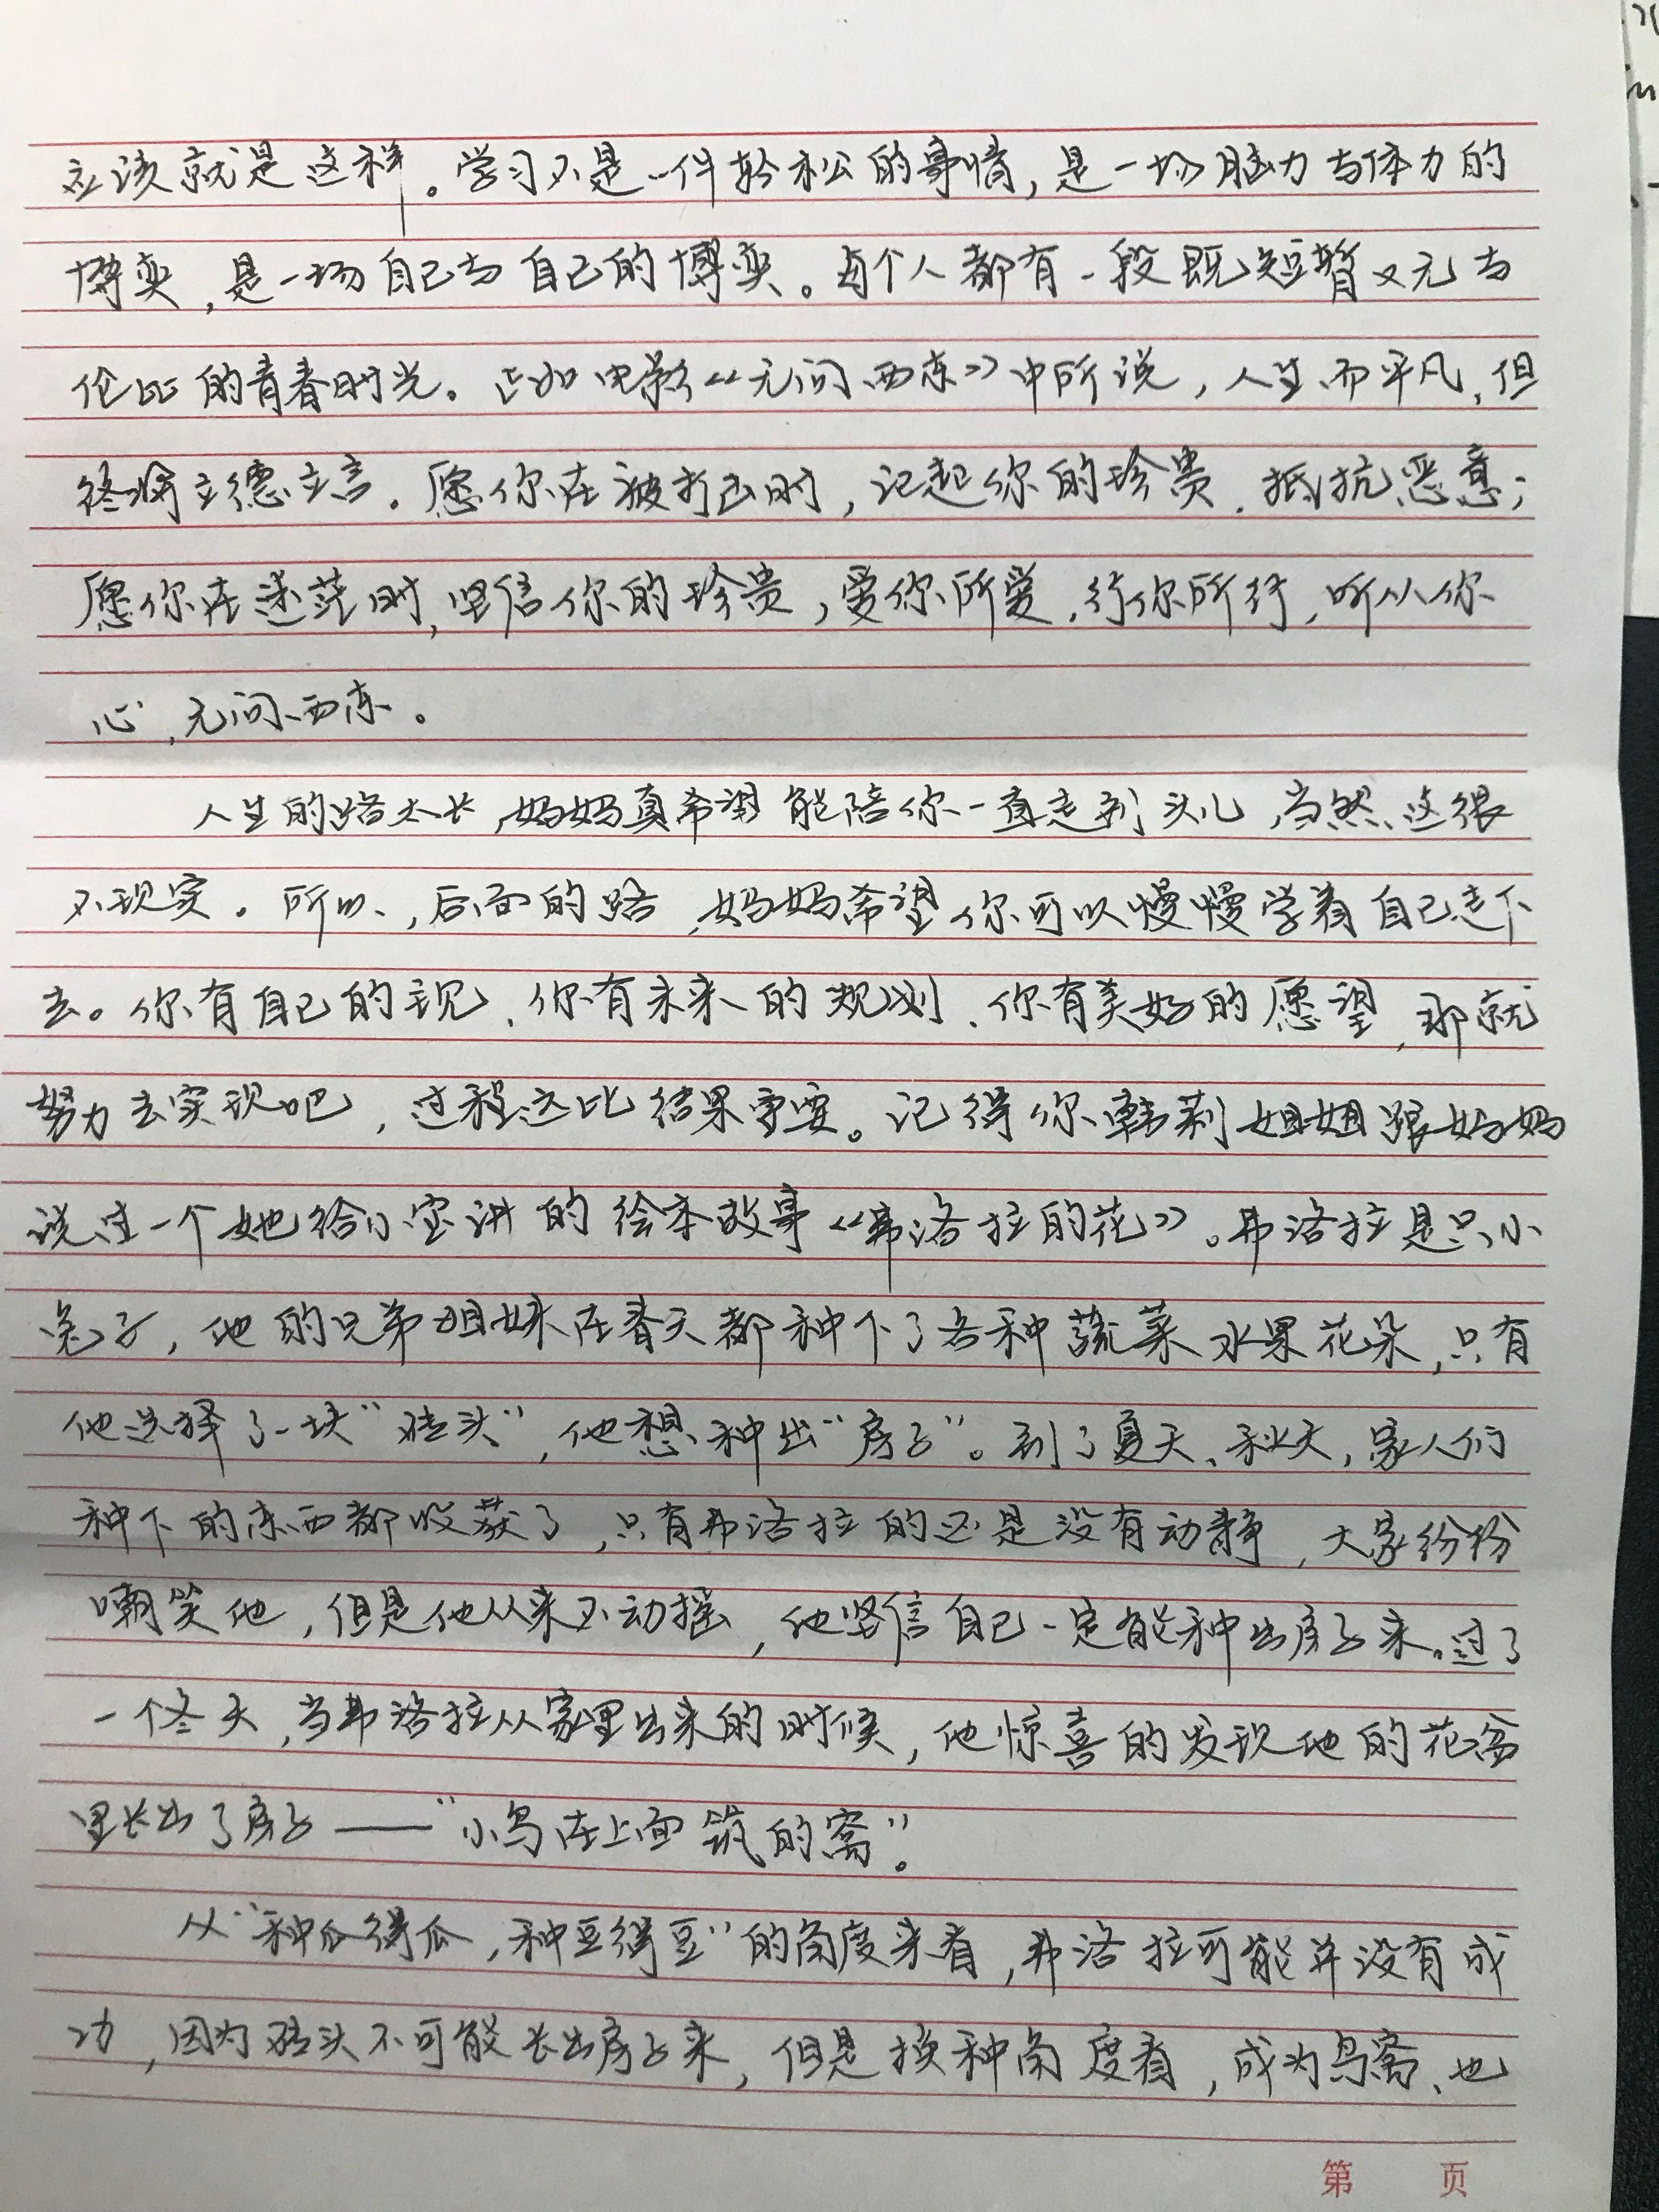 应该就是这样。学习不是一件轻松的事情,是一场脑力与体力的
博奕,是一场自己与自己的博奕。每个人都有一段既短暂又无与
伦比的青春时光。正如电影《无问西东》中所说,人生而平凡,但
终将立德立言。愿你在被打击时,记起你的珍贵,抵抗恶意;
愿你在迷茫时,坚信你的珍贵,爱你所爱,行你所行,听从你
心,无问西东。
人生的路太长,妈妈真希望能陪你一直走到头儿,当然、这很
不现实。所以、,后面的路,妈妈希望你可以慢慢学着自己走下
去。你有自己的观、你有未来的规划、你有美好的愿望,那就
努力去实现吧,过程远比结果重要。记得你韩莉姐姐跟妈妈
说过一个她给小宝讲的绘本故事《弗洛拉的花》。弗洛拉是只小
兔子,他的兄弟姐妹在春天都种下了各种蔬菜水果花朵,只有
他选择了一块“砖头”,他想种出“房子”。到了夏天、秋天,家人们
种下的东西都收获了,只有弗洛拉的还是没有动静,大家纷纷
嘲笑他,但是他从来不动摇,他坚信自己一定能种出房子来。过了
一个冬天,当弗洛拉从家里出来的时候,他惊喜的发现他的花盆
里长出了房子——“小鸟在上面筑的窝”。
从“种瓜得瓜,种豆得豆”的角度来看,弗洛拉可能并没有成
功,因为砖头不可能长出房子来,但是换种角度看,成为鸟窝、也
第 页